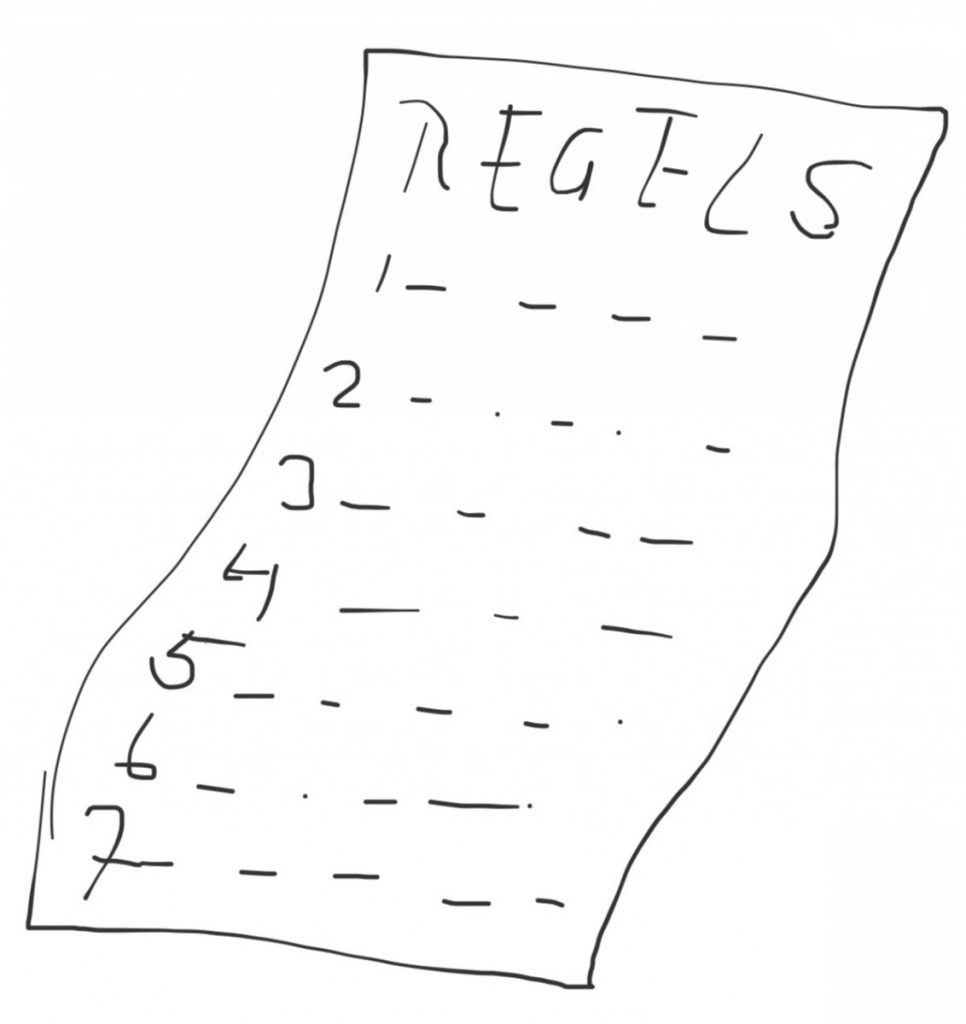 REGELS
1
2
3
4
5
6
7